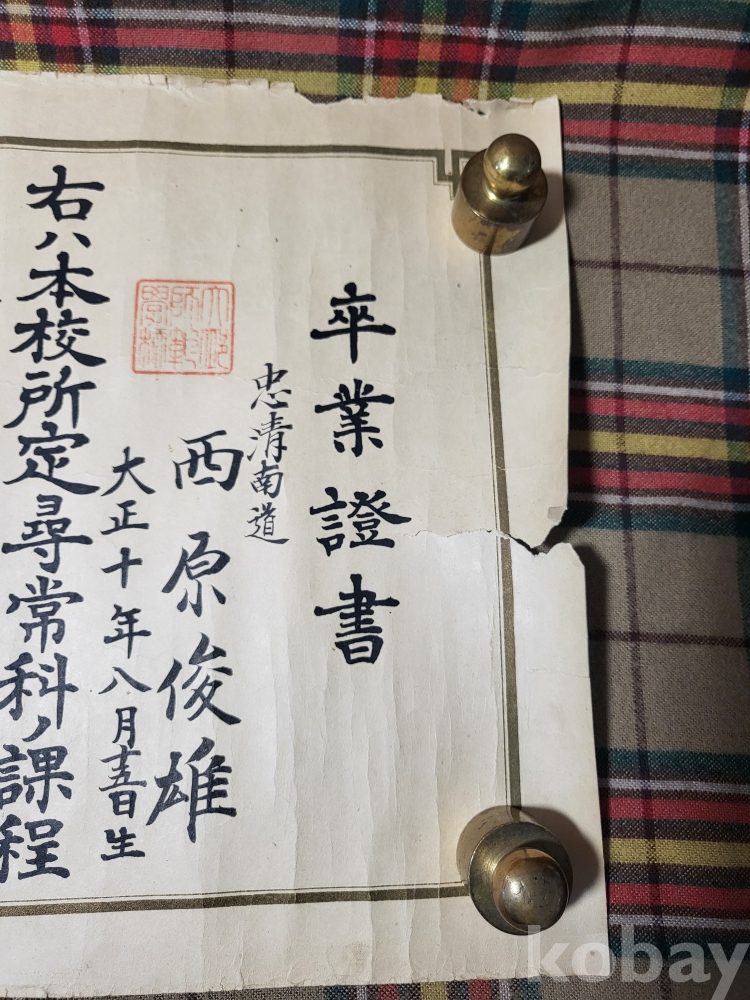 卒業證書
忠清南道
西原俊雄
大正十年八月十五日生
右ハ本校所定尋常科ノ課程
kobay